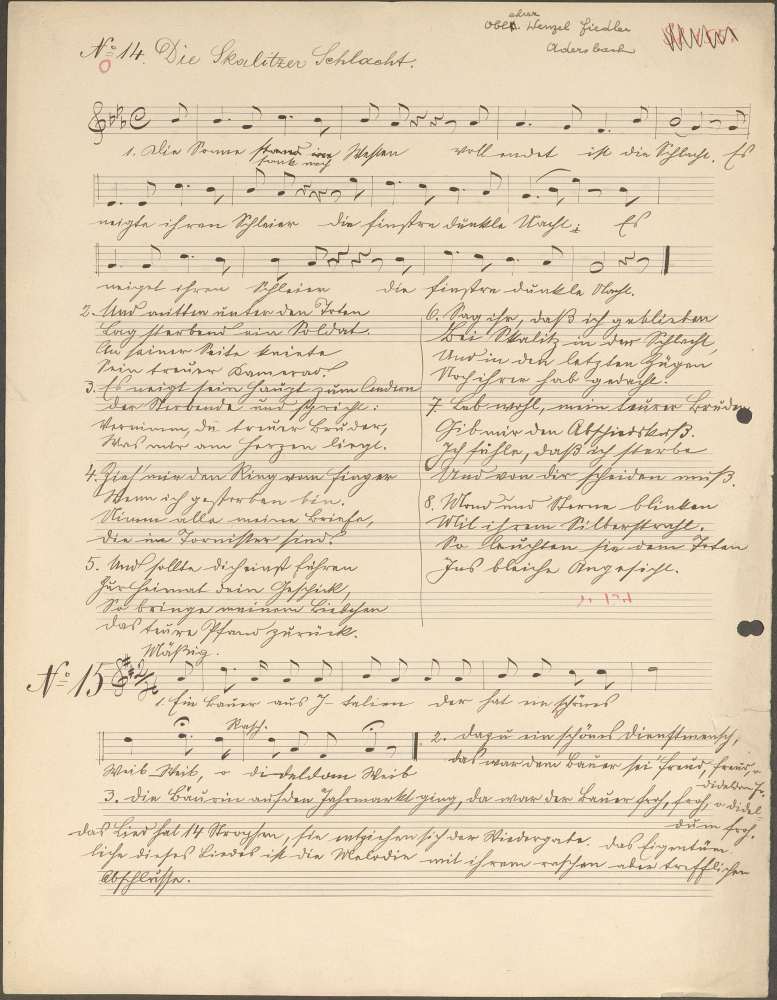 Oberlehrer Wenzel Fiedler
Adersbach
No 14. Die Skalitzer Schlacht.
1. Die Sonne stand im Westen voll endet ist die Schlacht. Es
sank nach
neigte ihren Schleier die finstre dunkle Nacht; Es
neiget ihren Schleier die finstre dunkle Nacht.
2. Und mitten unter den Toten
Lag sterbend ein Soldat.
An seiner Seite kniete
Sein treuer Kamerad.
3. Es neigt sein Haupt zum Andern
Der Sterbende und spricht:
Vernimm, du treuer Bruder,
Was mir am Herzen liegt.
4. Zieh' mir den Ring vom Finger
Wenn ich gestorben bin.
Nimm alle meine Briefe,
Die im Tornister sind.
5. Und sollte dich einst führen
Zur Heimat dein Geschick,
So bringe meinem Liebchen
Das teure Pfand zurück.
6. Sag ihr, daß ich geblieben
Bei Skalitz in der Schlacht,
Und in den letzten Zügen
Noch ihrer hab gedacht.
7. Leb wohl, mein teurer Bruder
Gib mir den Abschiedskuß.
Ich fühle, daß ich sterbe
Und von dir scheiden muß.
8. Mond und Sterne blinken
Mit ihrem Silberstrahl.
So leuchten sie dem Toten
Ins bleiche Angesicht.
Mäßig.
No 15
1. Ein Bauer aus I-talien der hat ein schönes
Rasch.
Weib Weib, o di deldom Weib
2. dazu ein schönes Dienstmensch,
das war dem Bauer sei Freud, Freud, o
dideldom Fr.
3. Die Bäurin auf den Jahrmarkt ging, da war der Bauer froh, froh, o didel-
dum froh.
Das Lied hat 14 Strophen, sie entziehen sich der Wiedergabe. Das Eigentüm-
liche dieses Liedes ist die Melodie mit ihrem raschen aber trefflichen
Abschlusse.